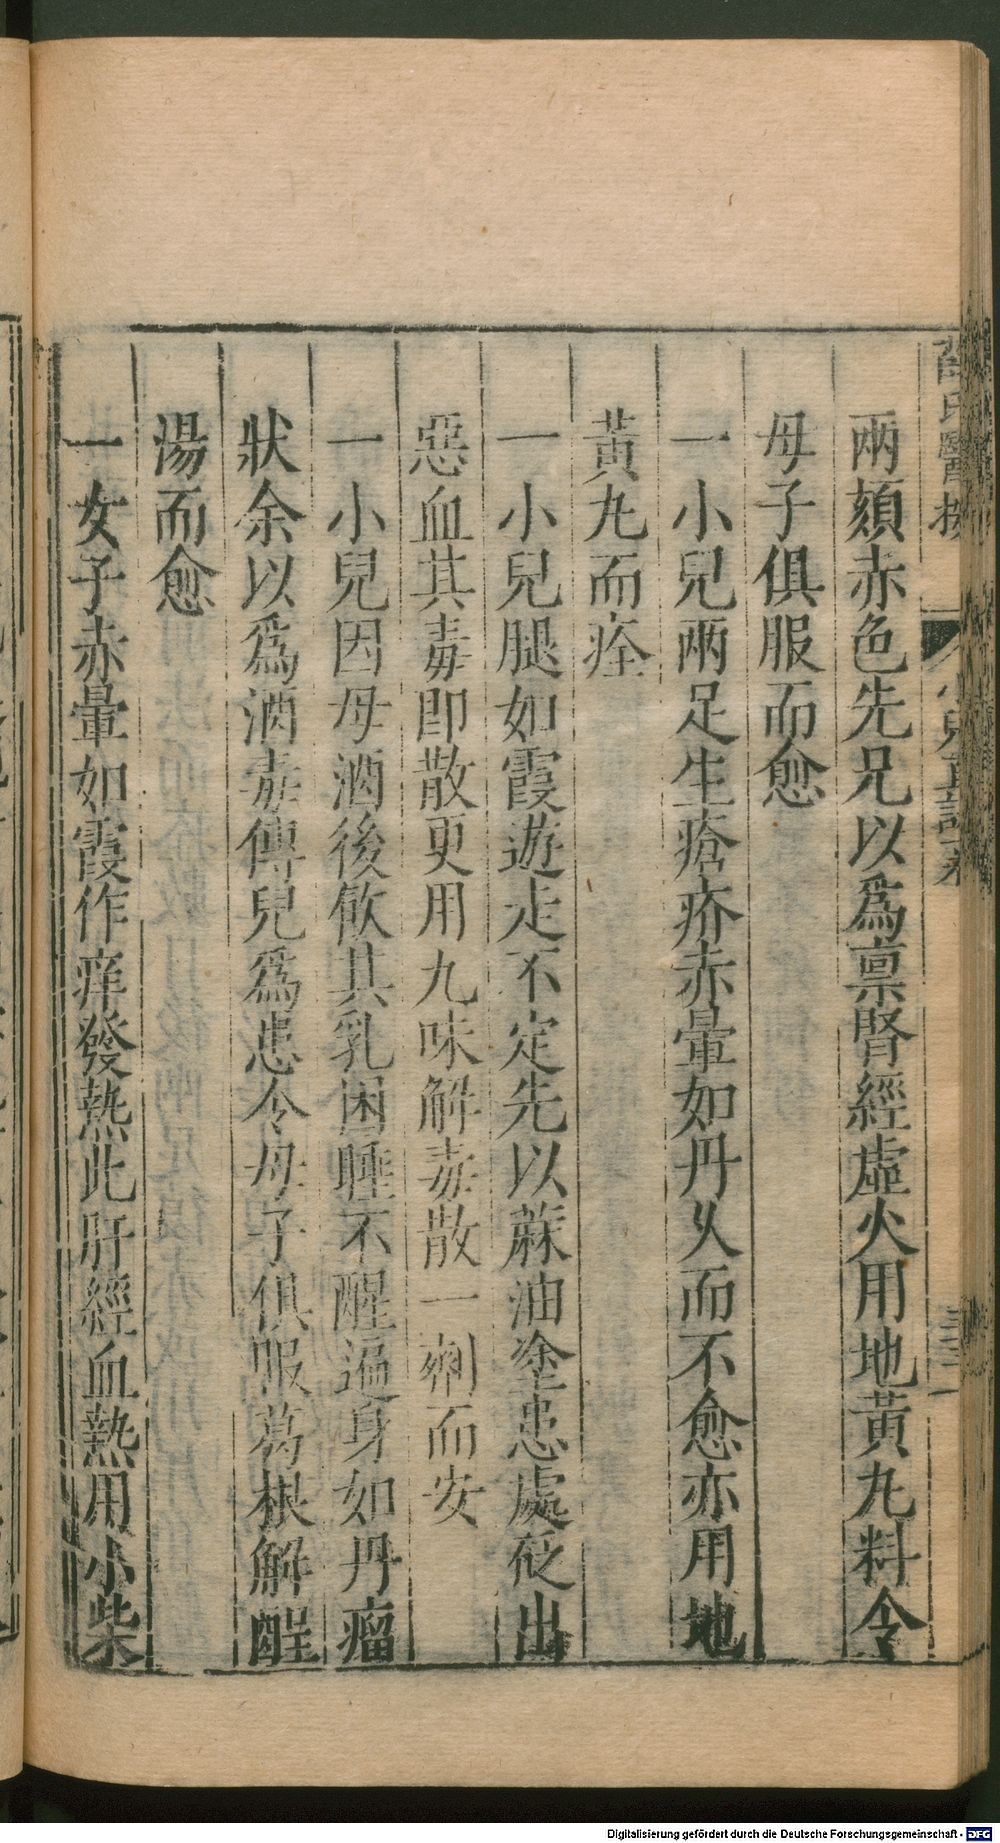 兩頦赤色先兄以爲禀腎經虛火用地黃丸料令
母子俱服而愈
一小兒兩足生瘡疥赤暈如丹火而不愈亦用地
黃丸而痊
一小兒腿如霞遊走不定先以蔴油塗患處砭出
惡血其毒即散更用九味解毒散一劑而安
一小兒因母酒後飲其乳困睡不醒遍身如丹瘤
狀余以爲酒毒傳兒爲患令母子俱服葛根解酲
湯而愈
一女子赤暈如霞作痒發熱此肝經血熱用小柴
Digitalisierung gefördert durch die Deutsche Forschungsgemeinschaft - DFG